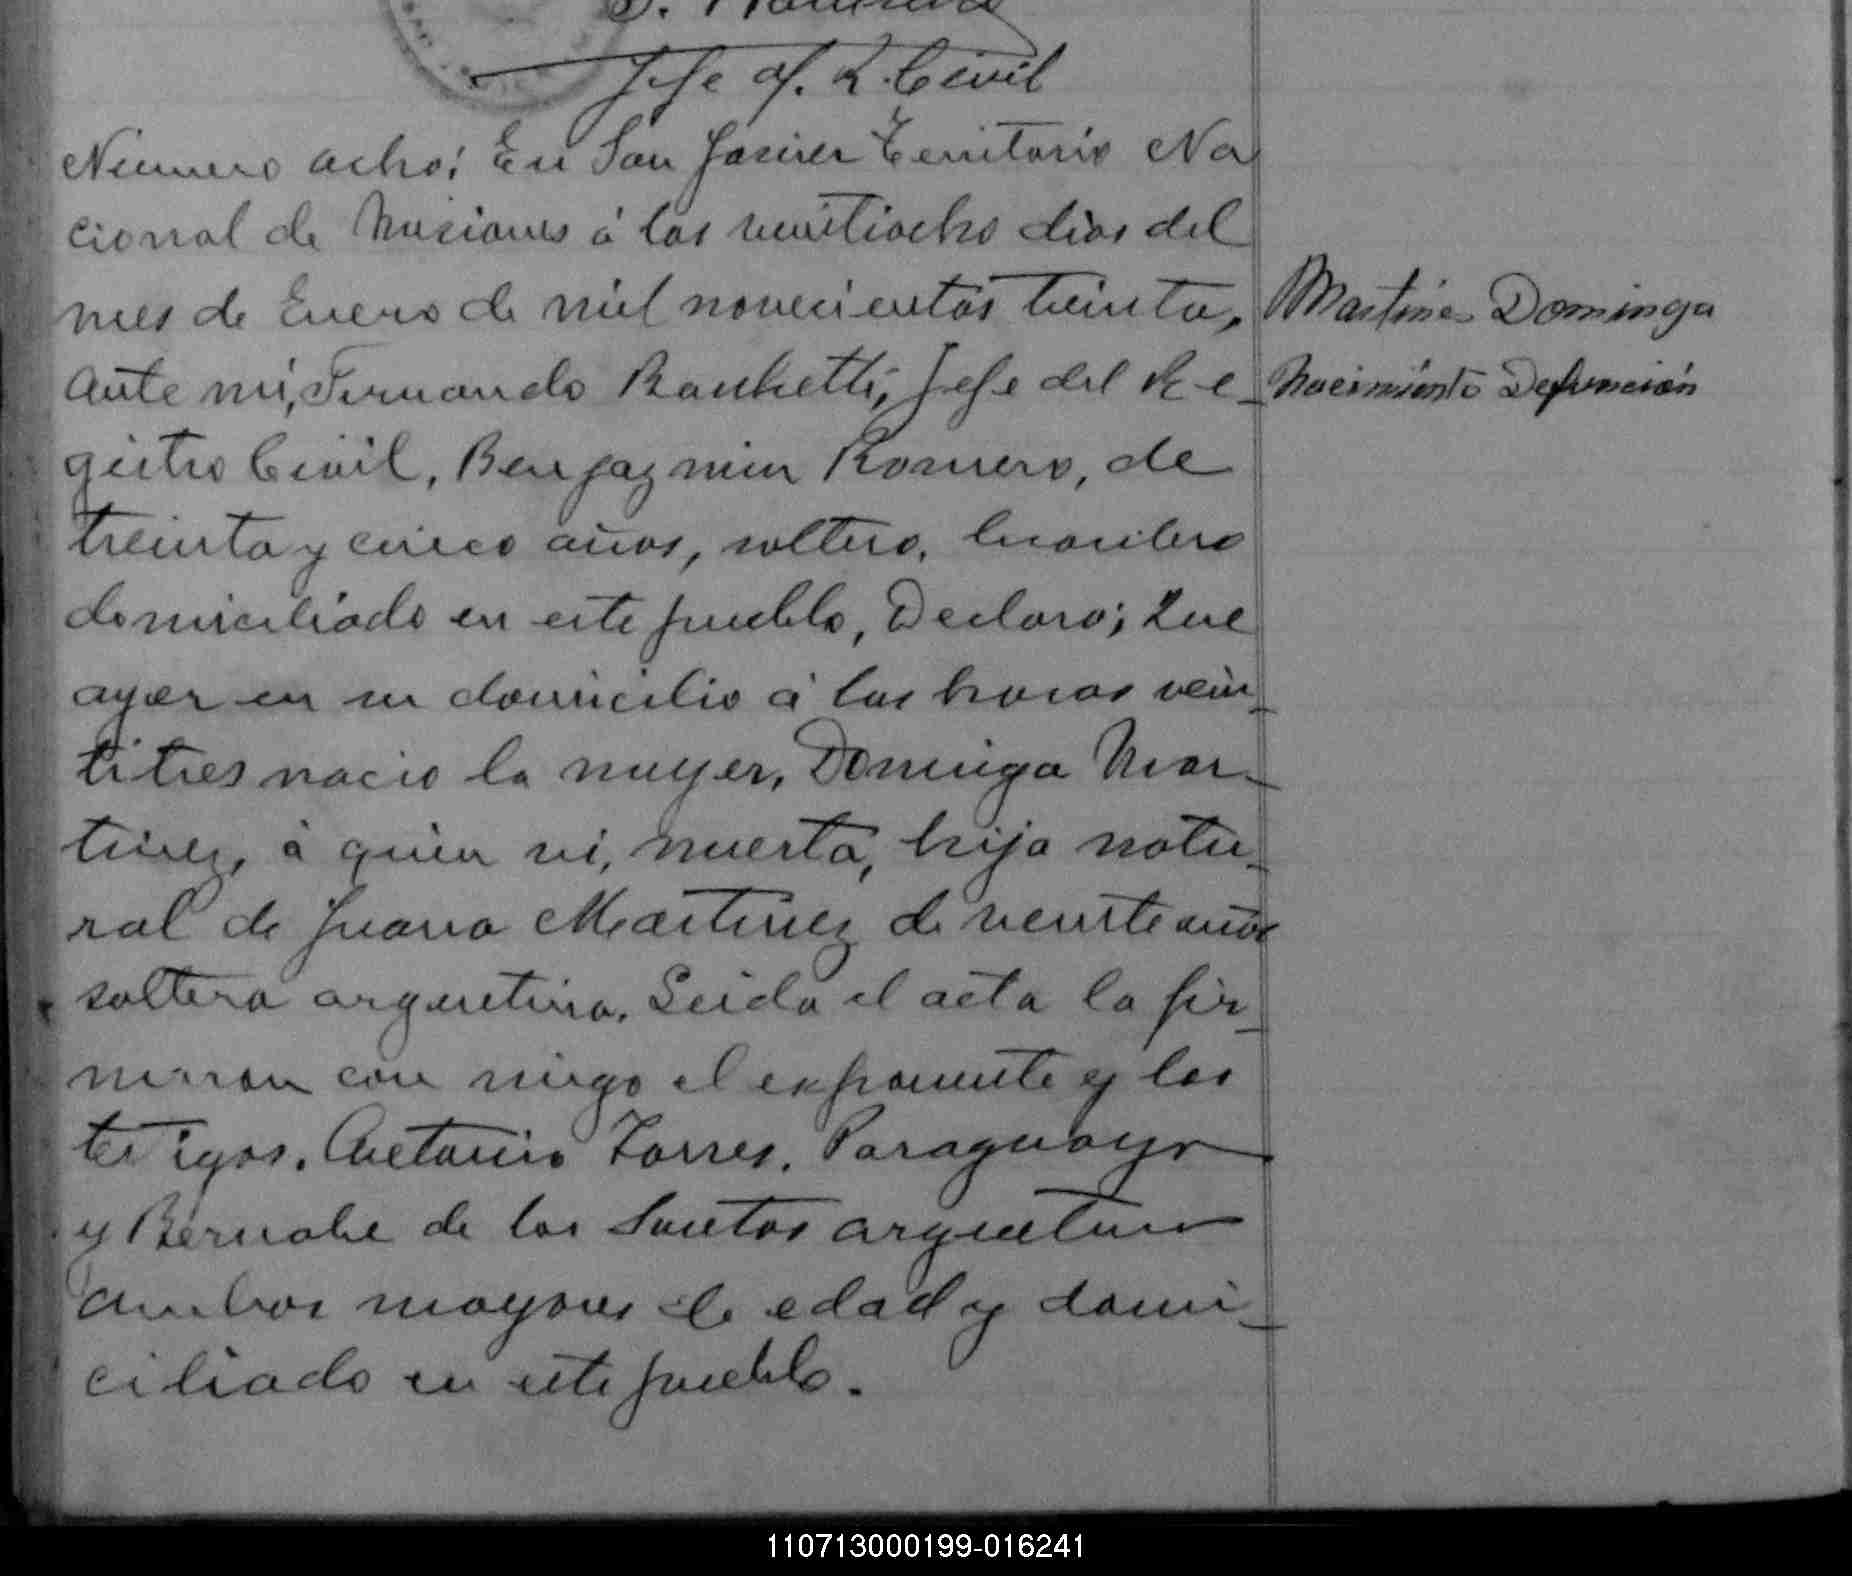 Jefe of. R. Civil
Número ocho: En San Javier Territorio Na
cional de Misiones á los veintiocho dias del
mes de Enero de mil novecientos treinta,
Martinez Dominga
ante mí, Fernando Jefe del Re-
Nacimiento Defunción
gistro Civil, Benjazmin Romero, de
treinta y cinco años, soltero,
domiciliado en este pueblo, Declaro; Que
ayer en su domicilio á las horas vein-
titres nacio la muger, Dominga Mar-
tinez, á quien vi, muerta, hija natu-
ral de Juana Martinez de veinte años
soltera argentina. Leida el acta la fir-
maron con migo el exponente y los
testigos. Antonio Torres, Paraguayo
y Bernabe de los Santos argentino
ambos mayores de edad y domi-
ciliado en este pueblo.
110713000199-016241